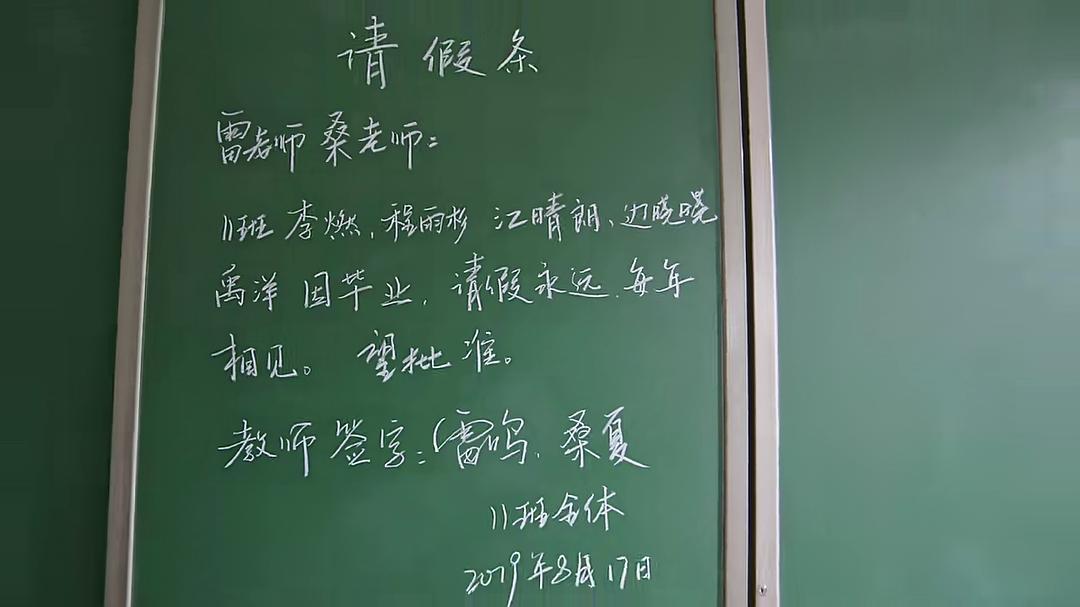 请假条
雷老师 桑老师：
11班 李燃，程雨杉 江晴朗、边晓晓
禹洋 因毕业，请假永远，每年
相见。 望批准。
教师签字：（雷鸣、桑夏
11班全体
2019年8月17日